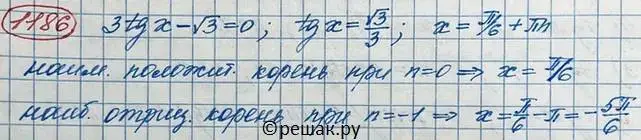 1186 3tg x - √3 = 0; tg x = √3/3; x = π/6 + πn
наим. положит. корень при n=0 ⇒ x = π/6
наиб. отриц. корень при n=-1 ⇒ x = π/6 - π = - 5π/6
©решак.ру